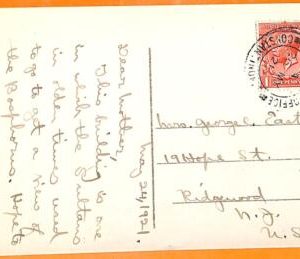 May 24, 1921.
Dear Mother,
This building is one
in which the Sultans
in olden times used
to go to get a view of
the Bosphorus. Hope to
Mrs. George L. East
19 Hope St.
Ridgewood
N. J.
U. S.